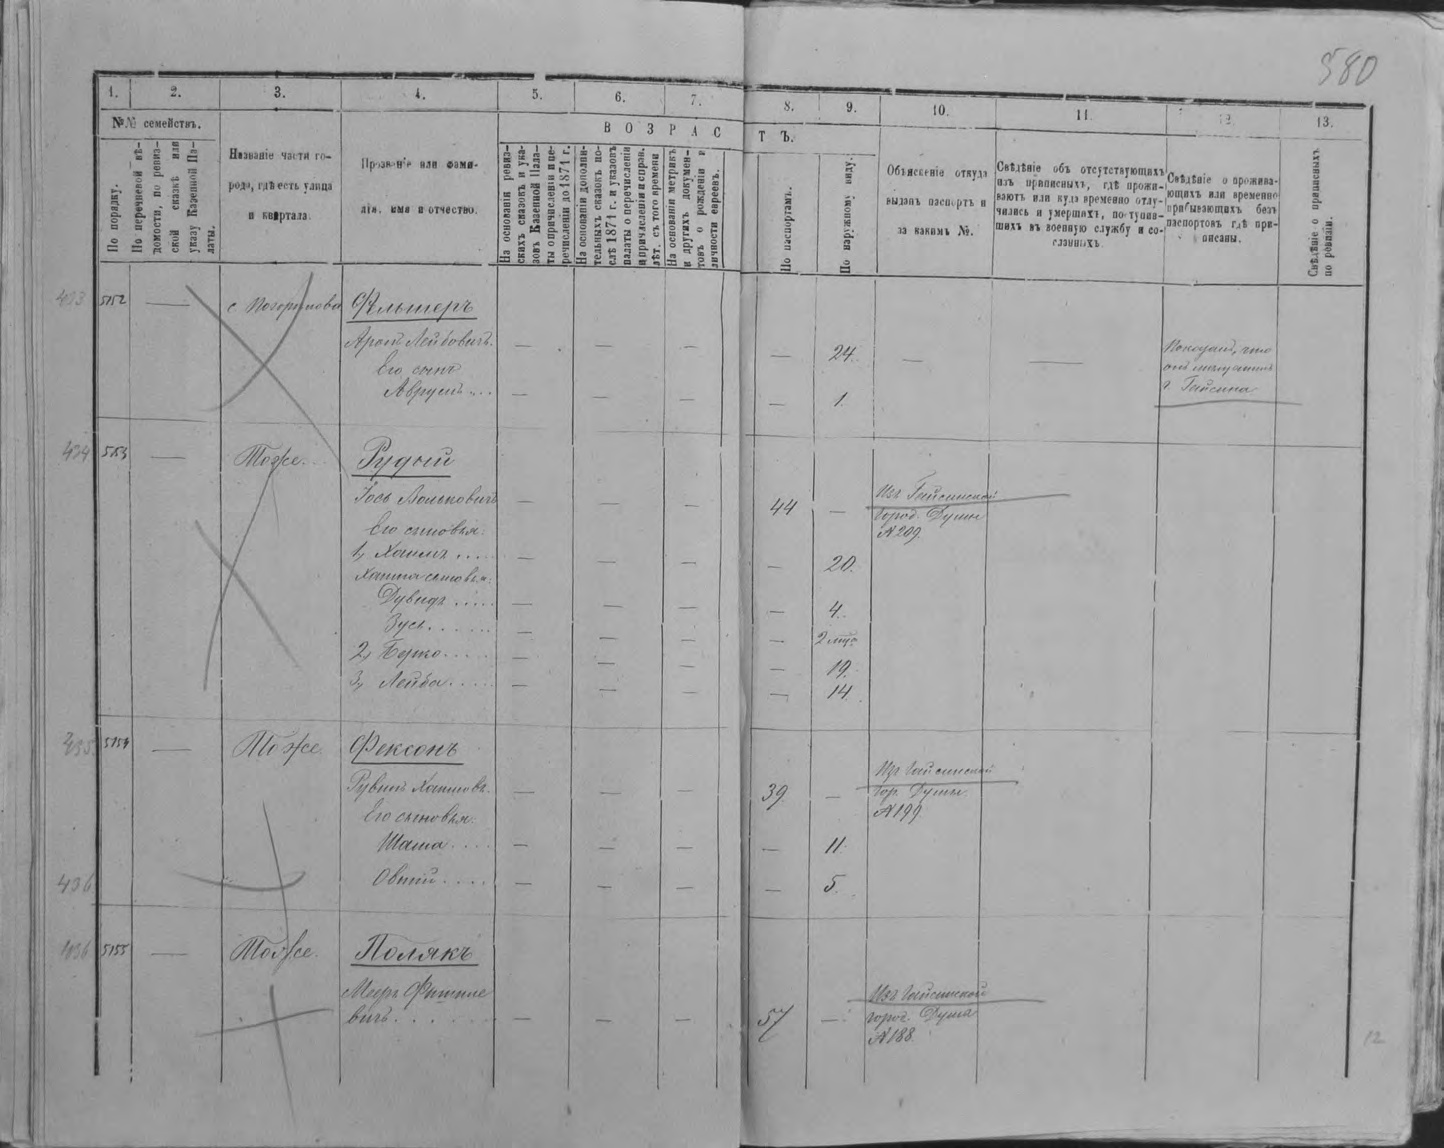 580
1. 2. 3. 4. 5. 6. 7. 8. 9. 10. 11. 12. 13.
№№ семействъ.
По порядку.
По перечневой вѣ-
домости, по ревиз-
ской сказкѣ или
указу Казенной Па-
латы.
Названіе части го-
рода, гдѣ есть улица
и квартала.
Прозваніе или фами-
лія, имя и отчество.
ВОЗРАСТЪ.
На основаніи ревиз-
скихъ сказокъ и ука-
зовъ Казенной Пала-
ты о причисленіи и пе-
речисленіи до 1871 г.
На основаніи дополни-
тельныхъ сказокъ по-
слѣ 1871 г. и указовъ
палаты о перечисленіи
и причисленіи и справ.
лѣт. съ того времени
На основаніи метрикъ
и другихъ докумен-
товъ о рожденіи и
личности евреевъ.
По паспортамъ.
По наружному виду.
Объясненіе откуда
выданъ паспортъ и
за какимъ №.
Свѣдѣніе объ отсутствующихъ
изъ приписныхъ, гдѣ прожи-
ваютъ или куда временно отлу-
чились и умершихъ, поступив-
шихъ въ военную службу и со-
сланныхъ.
Свѣдѣніе о прожива-
ющихъ или временно
прибывающихъ безъ
паспортовъ гдѣ при-
писаны.
Свѣдѣніе о приписныхъ
по ревизіи.
433 5152 — Фельшеръ
Аронъ Лейбовичъ. — — — — 24. — —
Его сынъ
Аврумъ — — — — 1.
Показалъ, что
г. Гайсина
434 5153 — Тоже. Рудый
Іось Вольковичъ — — — 44 — Изъ Гайсинской
город. Думы
№ 209.
Его сыновья:
1, Хаимъ — — — — 20.
Хаима сыновья:
Дувидъ — — — — 4.
Зусь — — — — 2 мѣс.
2, Берко — — — — 19.
3, Лейба — — — — 14.
435 5154 — Тоже Фексонъ
Рувинъ Хаимовъ. — — — 39 — Изъ Гайсинской
гор. Думы
№ 199.
Его сыновья:
Шама — — — — 11.
436 Овшій — — — — 5.
436 5155 — Тоже. Полякъ
Мееръ Фишиле
вичъ — — — 57 — Изъ Гайсинской
город. Дума
№ 188.
12